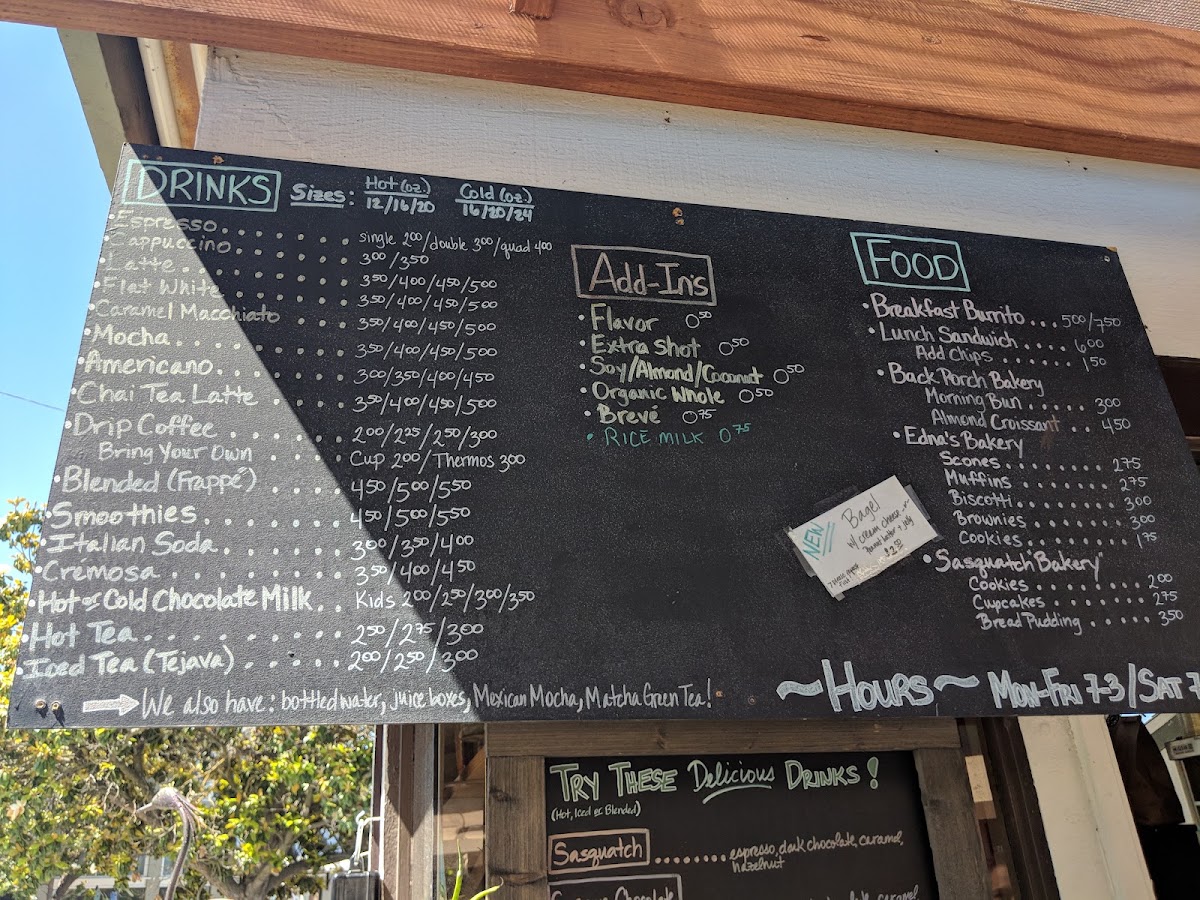 DRINKS Sizes: Hot (oz.) 12/16/20 Cold (oz.) 16/20/24
•Espresso . . . . . . . single 2⁰⁰/double 3⁰⁰/quad 4⁰⁰
•Cappuccino . . . . . . 3⁰⁰/3⁵⁰
•Latte . . . . . . . . 3⁵⁰/4⁰⁰/4⁵⁰/5⁰⁰
•Flat White . . . . . . 3⁵⁰/4⁰⁰/4⁵⁰/5⁰⁰
•Caramel Macchiato . . . . 3⁵⁰/4⁰⁰/4⁵⁰/5⁰⁰
•Mocha . . . . . . . . 3⁵⁰/4⁰⁰/4⁵⁰/5⁰⁰
•Americano . . . . . . . 3⁰⁰/3⁵⁰/4⁰⁰/4⁵⁰
•Chai Tea Latte . . . . . 3⁵⁰/4⁰⁰/4⁵⁰/5⁰⁰
•Drip Coffee . . . . . . 2⁰⁰/2²⁵/2⁵⁰/3⁰⁰
Bring Your Own . . . . Cup 2⁰⁰/Thermos 3⁰⁰
•Blended (Frappé) . . . . 4⁵⁰/5⁰⁰/5⁵⁰
•Smoothies . . . . . . . 4⁵⁰/5⁰⁰/5⁵⁰
•Italian Soda . . . . . . 3⁰⁰/3⁵⁰/4⁰⁰
•Cremosa . . . . . . . . 3⁵⁰/4⁰⁰/4⁵⁰
•Hot or Cold Chocolate Milk . . Kids 2⁰⁰/2⁵⁰/3⁰⁰/3⁵⁰
•Hot Tea . . . . . . . . 2⁵⁰/2⁷⁵/3⁰⁰
•Iced Tea (Tejava) . . . . . 2⁰⁰/2⁵⁰/3⁰⁰
→ We also have: bottled water, juice boxes, Mexican Mocha, Matcha Green Tea!
Add-In's
•Flavor 0⁵⁰
•Extra Shot 0⁵⁰
•Soy/Almond/Coconut 0⁵⁰
•Organic Whole 0⁵⁰
•Brevé 0⁷⁵
•RICE MILK 0⁷⁵
FOOD
•Breakfast Burrito . . . 5⁰⁰/7⁵⁰
•Lunch Sandwich . . . . . 6⁰⁰
Add Chips . . . . . . 1⁵⁰
•Back Porch Bakery
Morning Bun . . . . . 3⁰⁰
Almond Croissant . . 4⁵⁰
•Edna's Bakery
Scones . . . . . . . . 2⁷⁵
Muffins . . . . . . . 2⁷⁵
Biscotti . . . . . . . 3⁰⁰
Brownies . . . . . . . 3⁰⁰
Cookies . . . . . . . 1⁷⁵
•Sasquatch Bakery
Cookies . . . . . . . 2⁰⁰
Cupcakes . . . . . . . 2⁷⁵
Bread Pudding . . . . . 3⁵⁰
NEW
Bagel
w/ cream cheese or
Peanut butter + jelly
~HOURS~ MON-FRI 7-3/SAT 7
TRY THESE Delicious DRINKS!
(Hot, Iced or Blended)
Sasquatch . . . . . . . . espresso, dark chocolate, caramel,
hazelnut